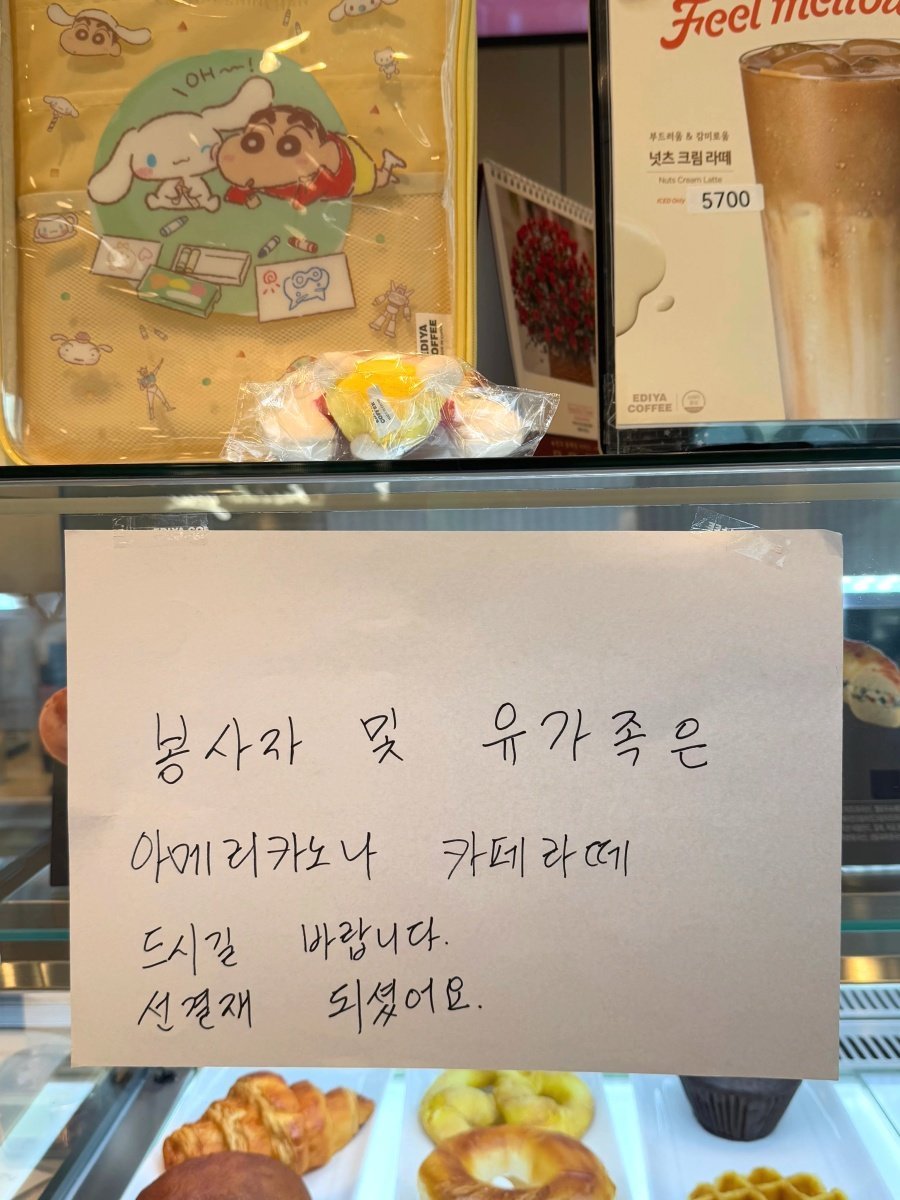 OH~!
EDIYA
COFFEE
Feel mellow
부드러움 & 감미로움
넛츠 크림 라떼
Nuts Cream Latte
ICED ONLY 5700
EDIYA
COFFEE
EDIYA CO
봉사자 및 유가족은
아메리카노나 카페라떼
드시길 바랍니다.
선결재 되셨어요.